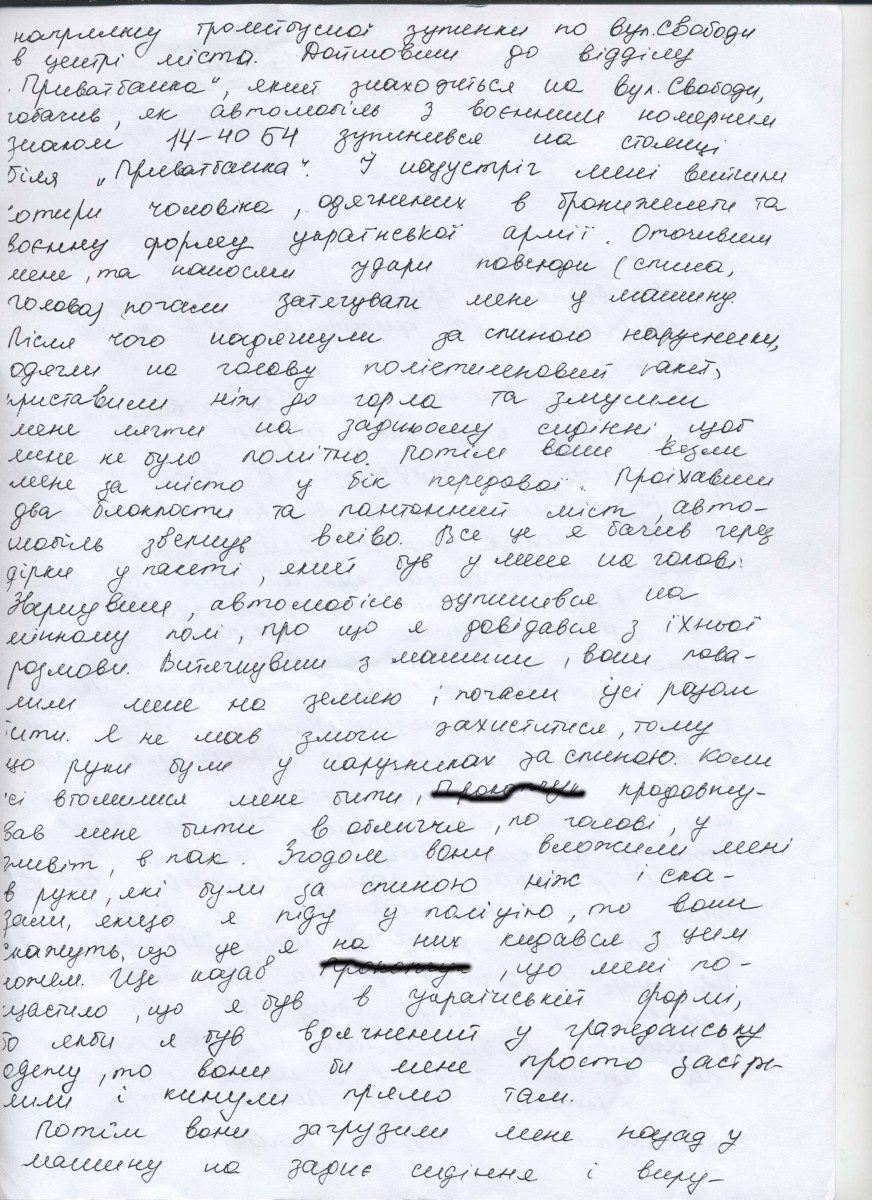 напрямку тролейбусної зупинки по вул. Свободи
в центрі міста. Дойшовши до відділу
"Приватбанка", який знаходиться на вул. Свободи,
побачив, як автомобіль з воєнним номерним
знаком 14-40 Б4 зупинився на стоянці
біля "Приватбанка". І назустріч мені вийшли
чотири чоловіка, одягнених в бронижилети та
воєнну форму української армії. Оточивши
мене, та наносячи удари повсюди (спина,
голова) почали затягувати мене у машину.
Після чого надягнули за спиною наручники,
одягли на голову полієтиленовий пакет,
приставили ніж до горла та змусили
мене лягти на задньому сидінні, щоб
мене не було помітно. Потім вони везли
мене за місто у бік передової. Проїхавши
два блокпости та пантонний міст, авто-
мобіль звернув вліво. Все це я бачив через
дірки у пакеті, який був у мене на голові.
Звернувши, автомобіль зупинився на
мінному полі, про що я довідався з їхньої
розмови. Витягнувши з машини, вони пова-
лили мене на землю і почали усі разом
бити. Я не мав змоги захиститися, тому
що руки були у наручниках за спиною. Коли
всі втомилися мене бити, продовжу-
вав мене бити в обличчя, по голові, у
живіт, в пах. Згодом вони вложили мені
в руки, які були за спиною ніж і ска-
зали, якщо я піду у поліцію, то вони
скажуть, що це я на них кидався з цим
ножем. Ще казав , що мені по-
щастило, що я був в українській формі,
бо якби я був вдягнений у гражданську
одежу, то вони би мене просто застре-
лили і кинули прямо там.
Потім вони загрузили мене назад у
машину на заднє сидіння і виру-